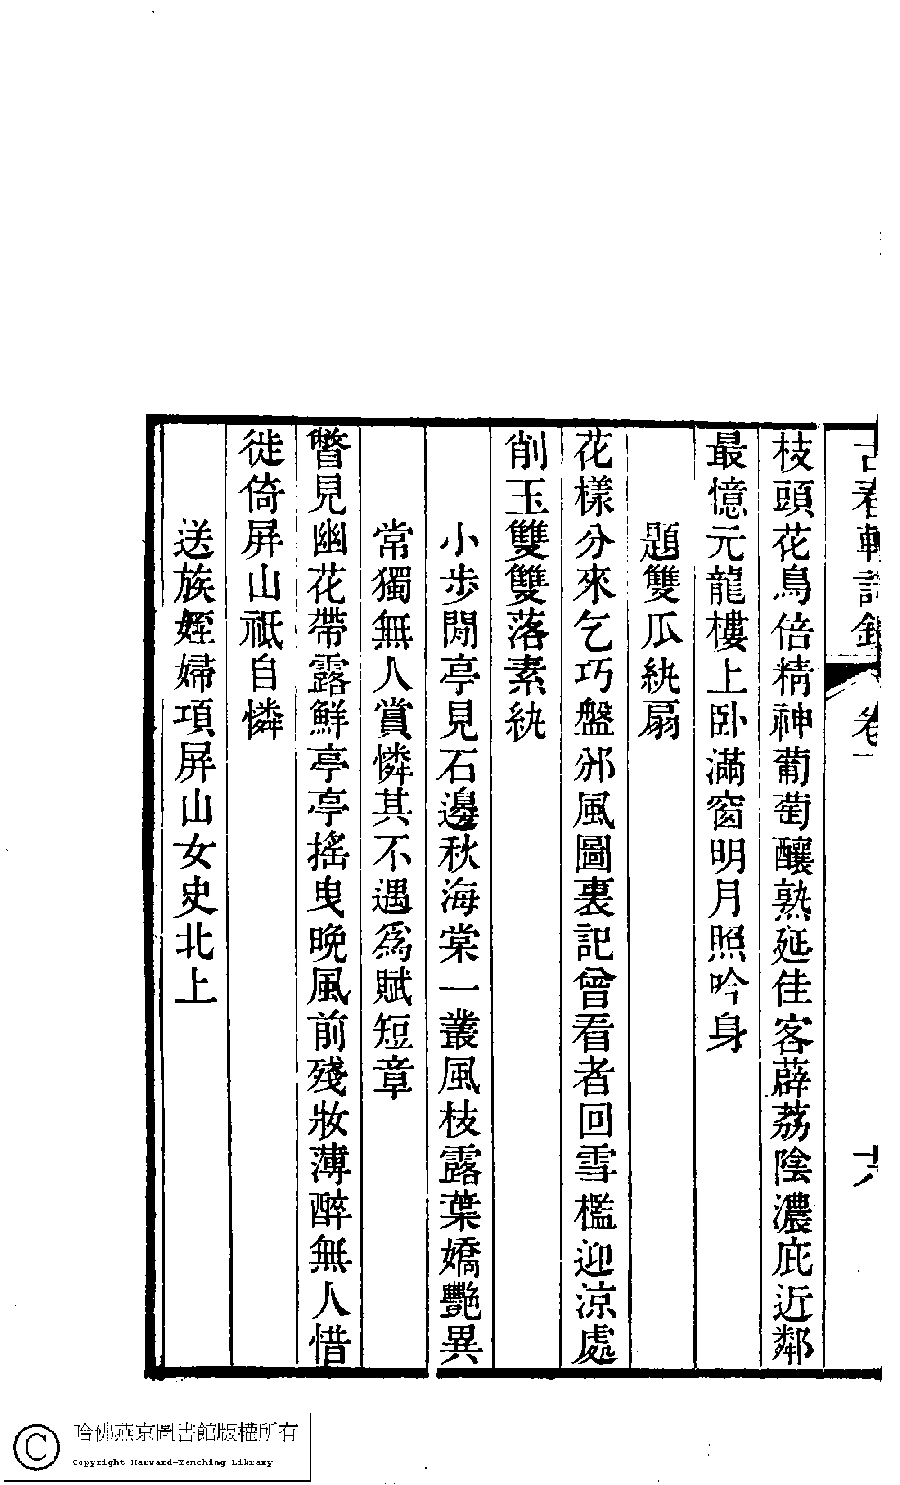 古春軒詩鈔 卷一 十六
枝頭花鳥倍精神葡萄釀熟延佳客薜荔陰濃庇近鄰
最憶元龍樓上卧滿窗明月照吟身
題雙瓜紈扇
花樣分來乞巧盤邠風圖裏記曾看者回雪檻迎涼處
削玉雙雙落素紈
小步閒亭見石邊秋海棠一叢風枝露葉嬌艷異
常獨無人賞憐其不遇為賦短章
瞥見幽花帶露鮮亭亭搖曳晚風前殘妝薄醉無人惜
徙倚屏山祗自憐
送族姪婦項屏山女史北上
哈佛燕京圖書館版權所有
Copyright Harvard-Yenching Library